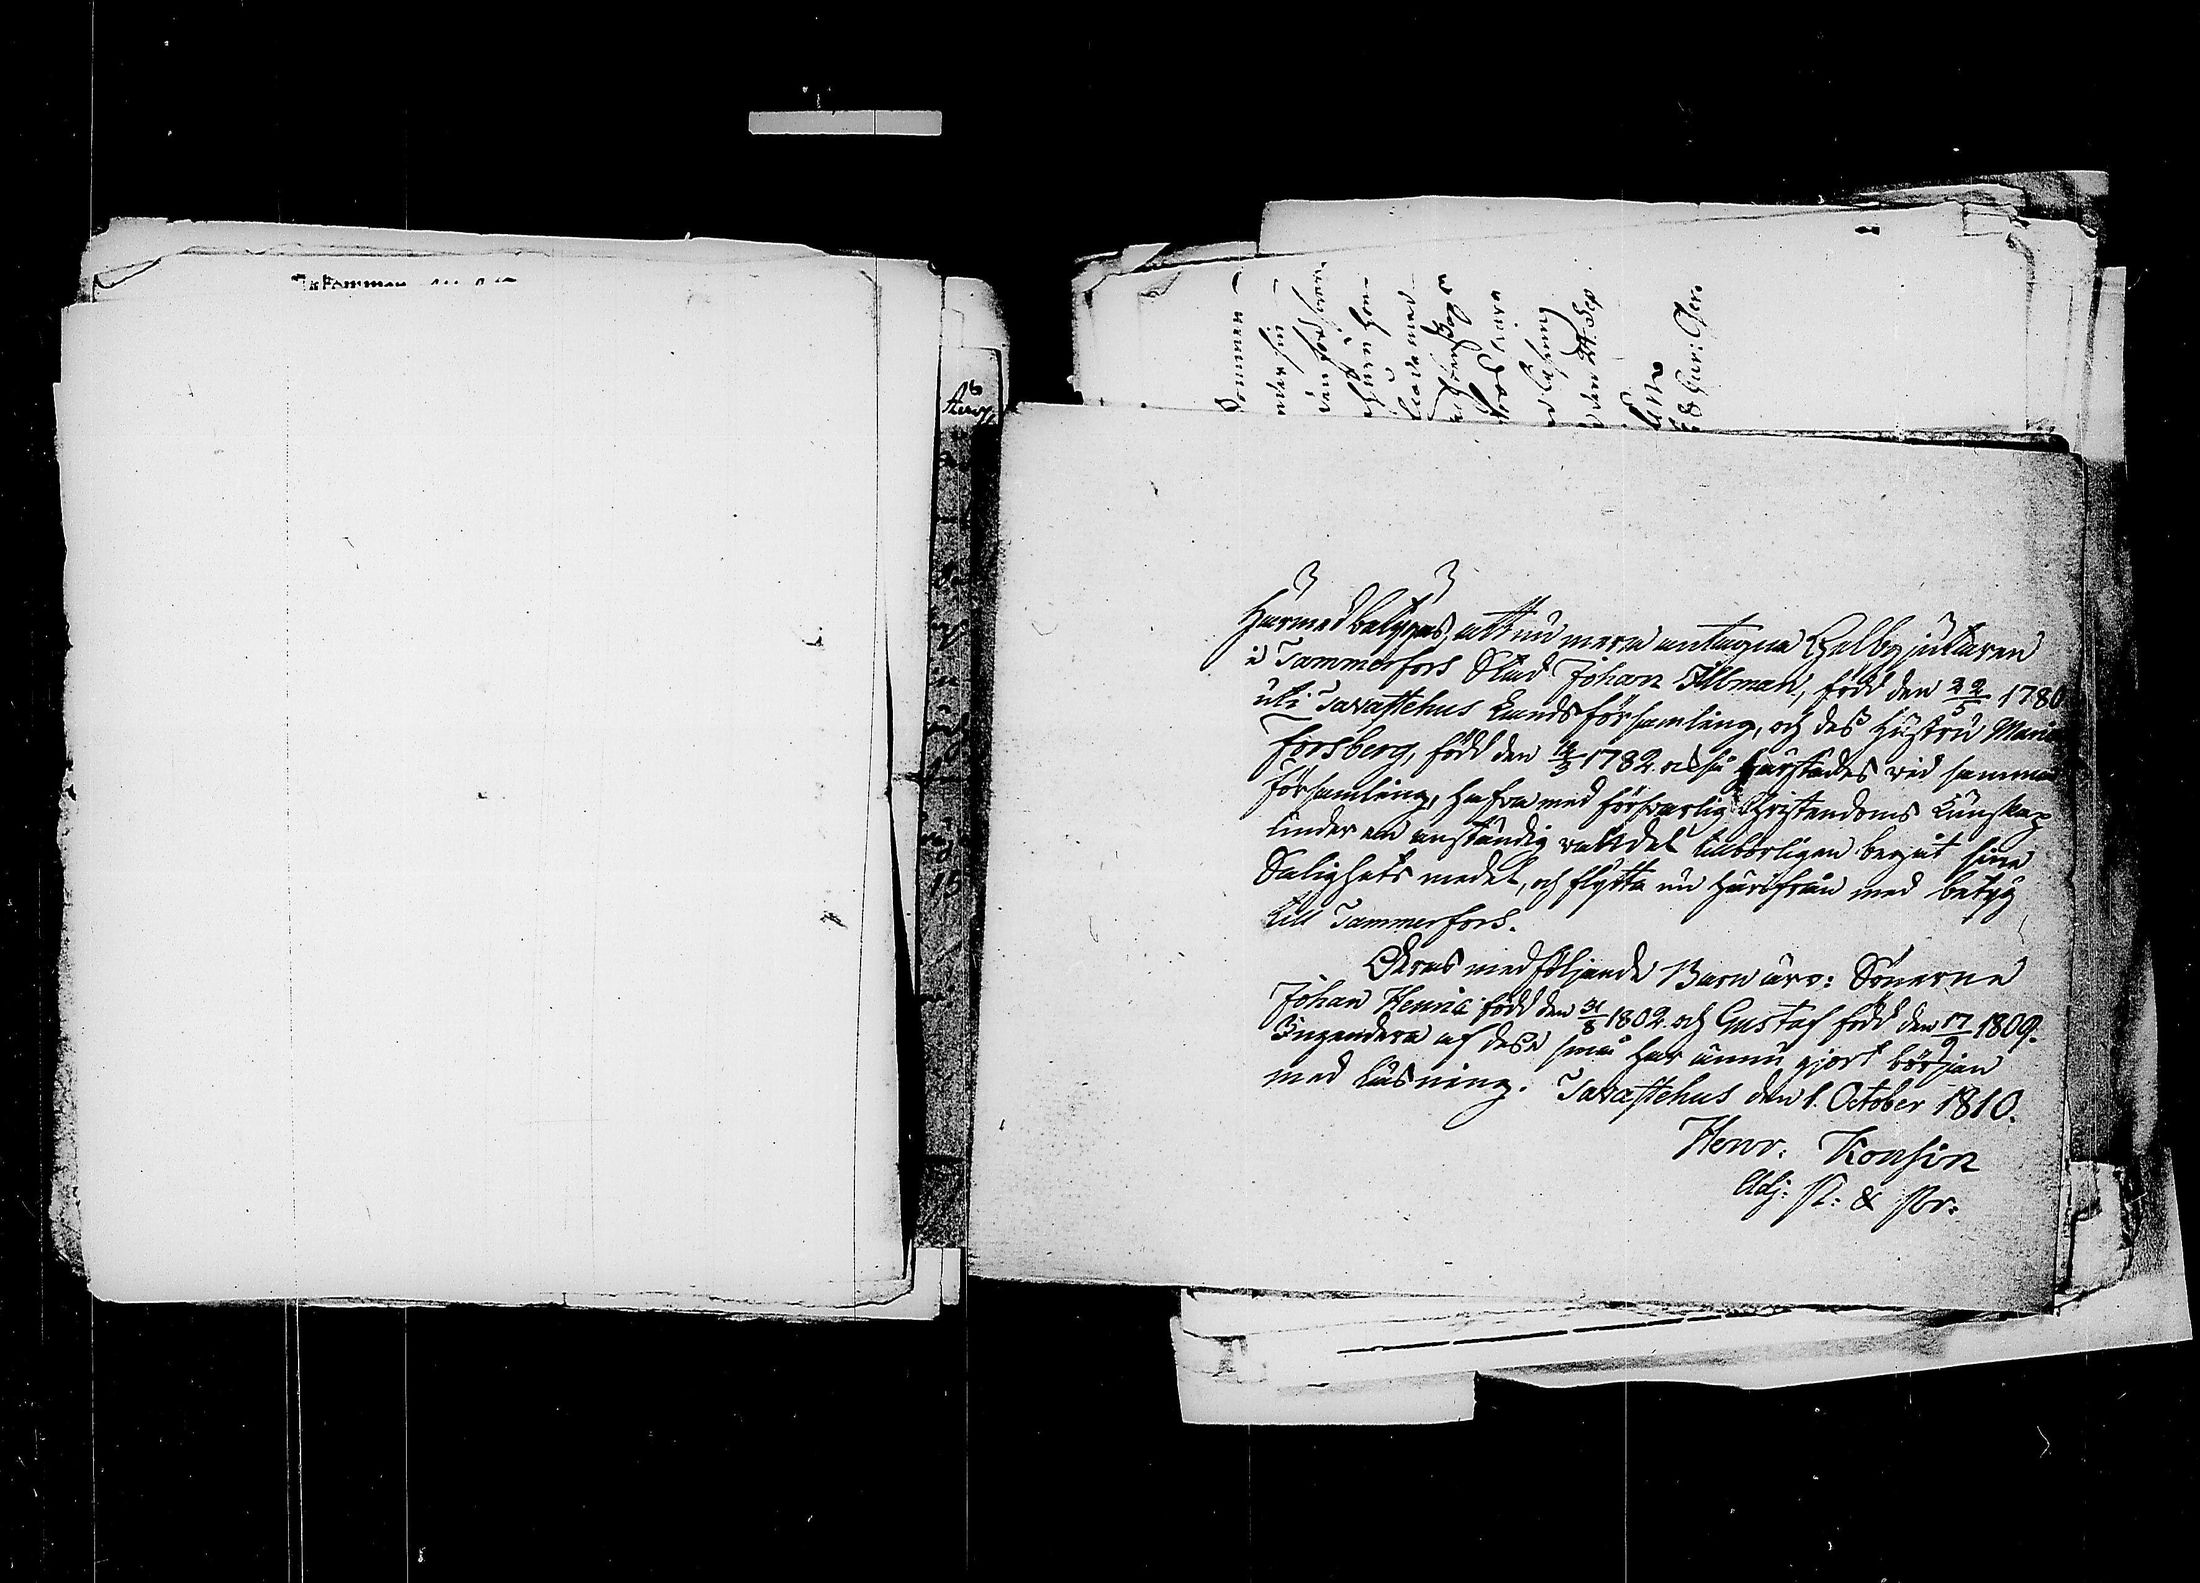 Härmed betygas, att nu mera antagne Gelbgjutaren
i Tammerfors Stad Johan Illman, född den 22/5 1780
uti Tavastehus Landsförsamling, och des Hustru Maria
Forsberg, född den 12/3 1782 också härstädes vid samma
församling, hafva med försvarlig Christendoms Kunskap
under en anständig vandel tillbörligen begåt sine
Salighets medel, och flytta nu härifrån med betyg
till Tammerfors.
Deras medföljande Barn äro: Sönerne
Johan Henric född den 31/8 1802. och Gustaf född den 17/9 1809.
Ingendera af dese små har ännu gjort början
med läsning. Tavastehus den 1. October 1810.
Henr: Konsin
Adj: P: & Pr:
den 24 Sep